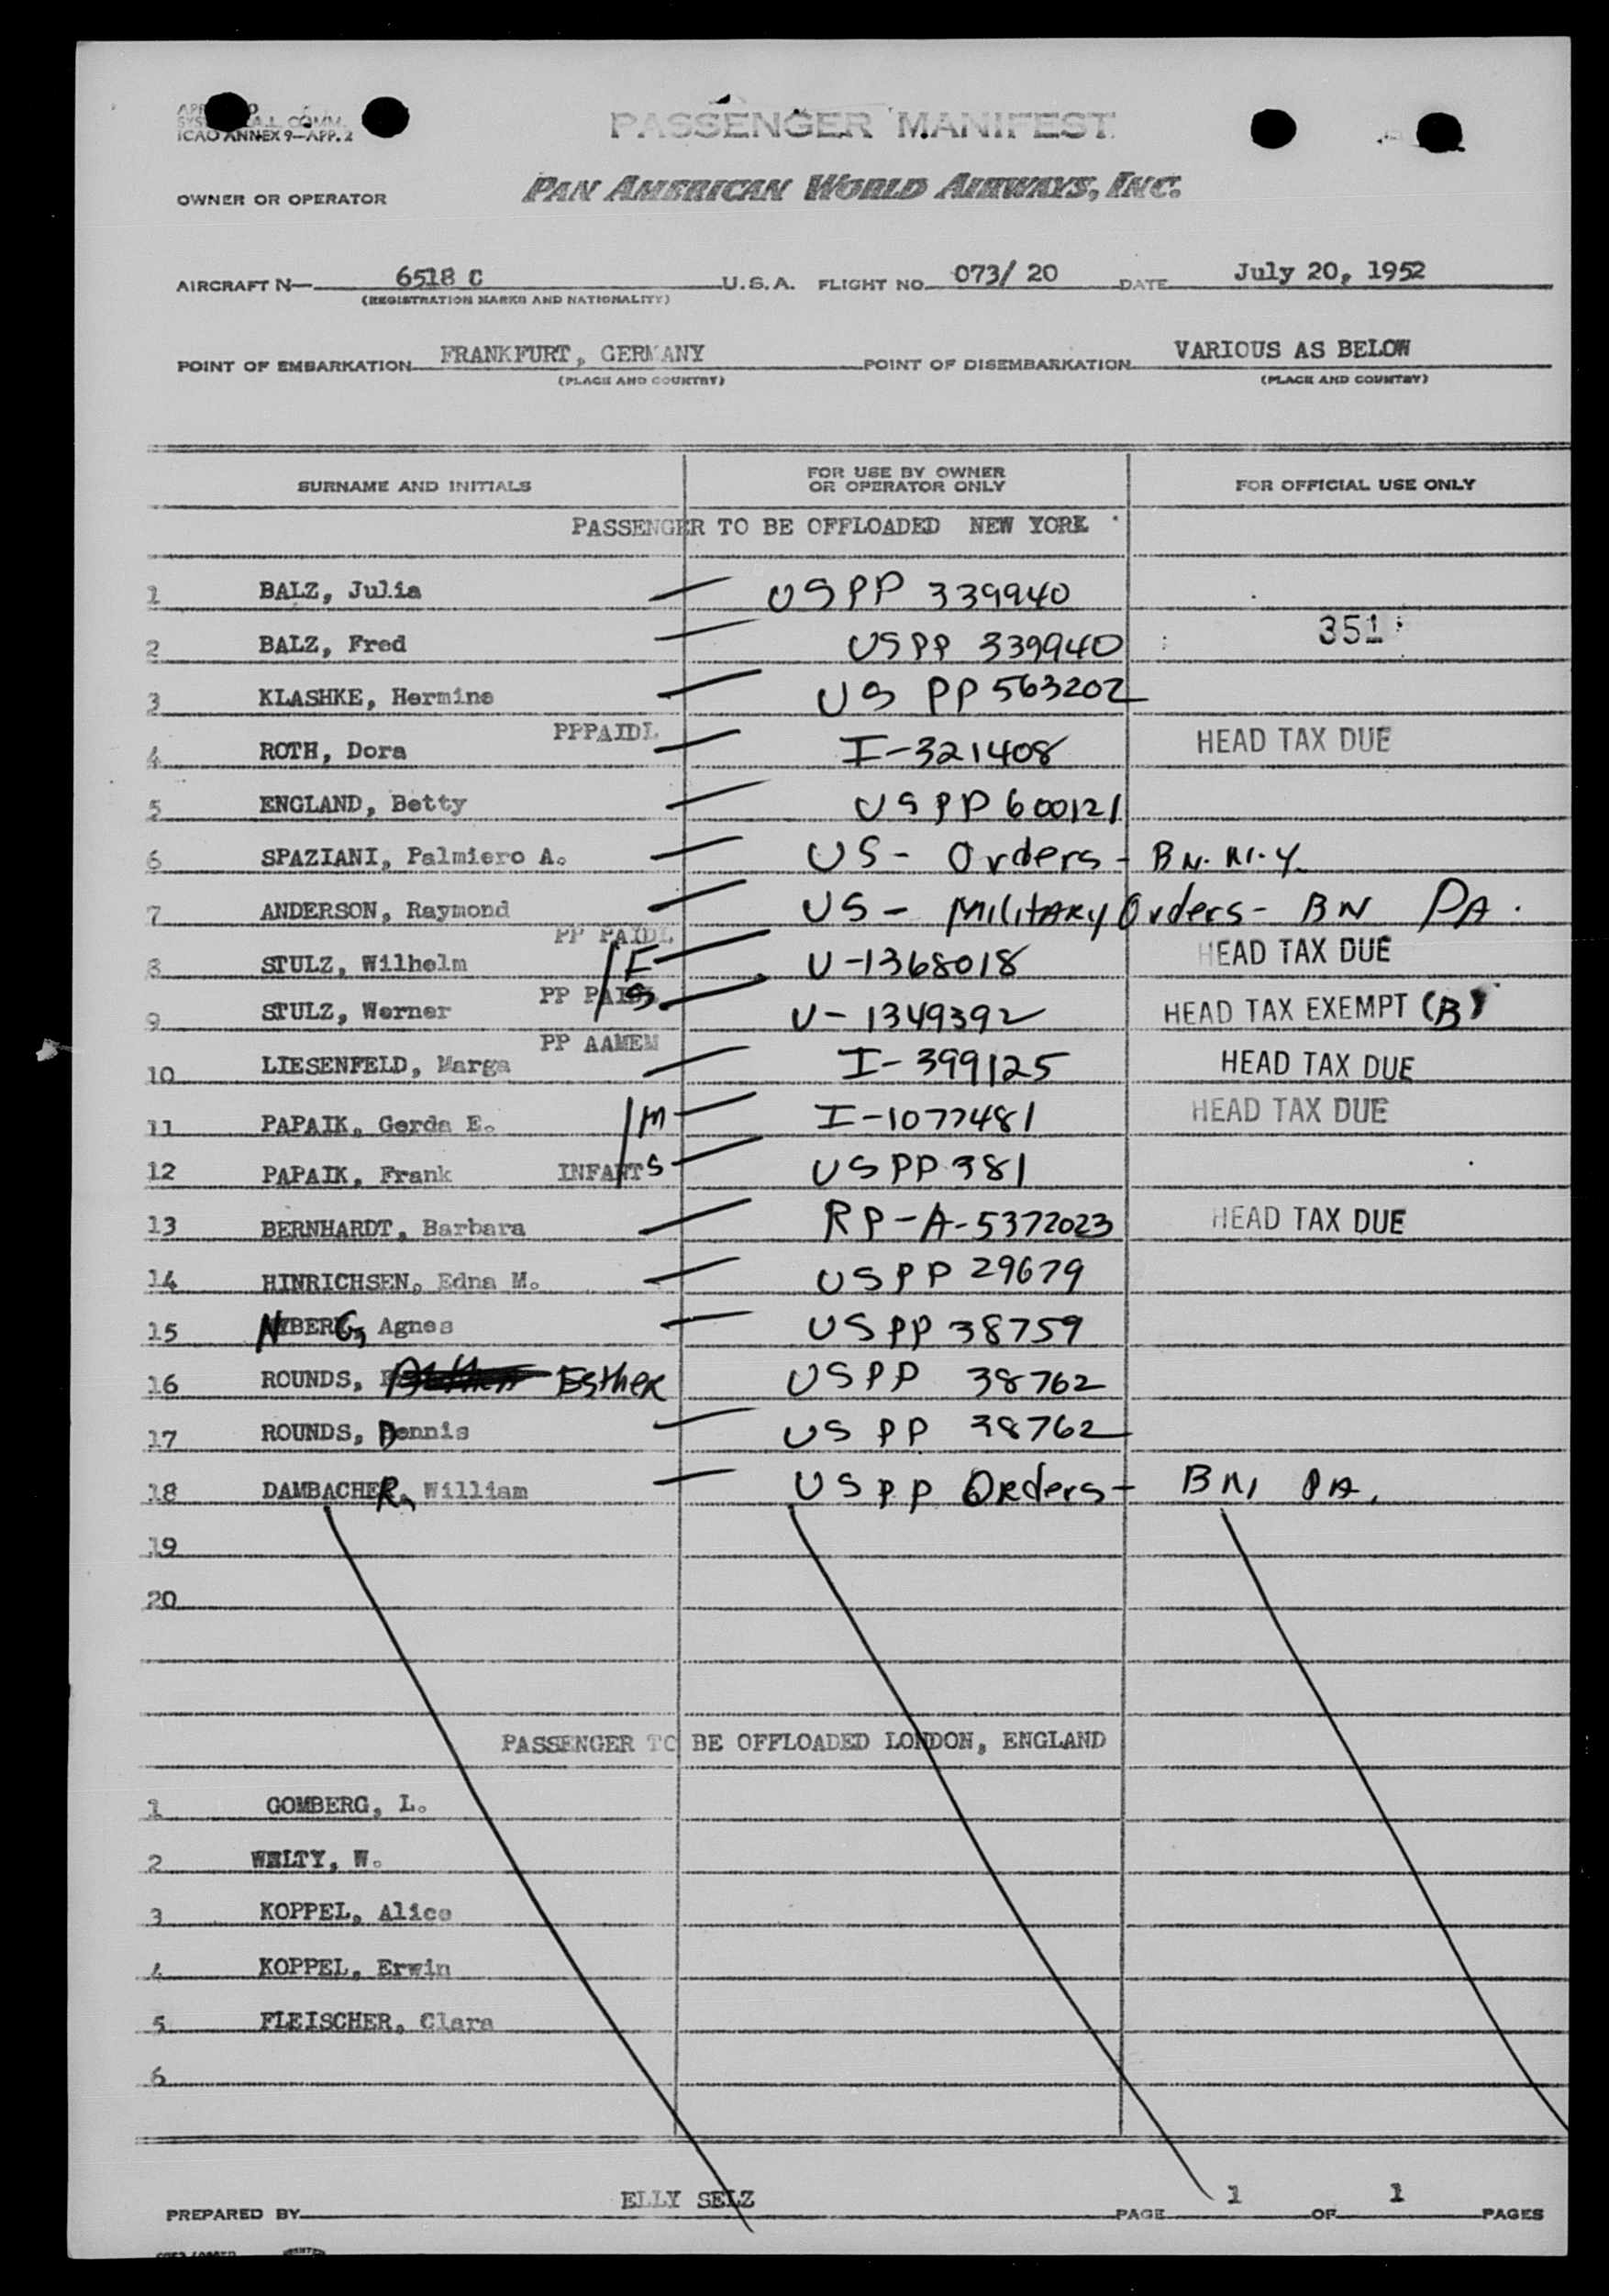 ICAO ANNEX 9—APP. 2
PASSENGER MANIFEST
OWNER OR OPERATOR PAN AMERICAN WORLD AIRWAYS, INC.
AIRCRAFT N— 6518 C U.S.A. FLIGHT NO. 073/ 20 DATE July 20, 1952
(REGISTRATION MARKS AND NATIONALITY)
POINT OF EMBARKATION FRANKFURT, GERMANY POINT OF DISEMBARKATION VARIOUS AS BELOW
(PLACE AND COUNTRY) (PLACE AND COUNTRY)
SURNAME AND INITIALS FOR USE BY OWNER OR OPERATOR ONLY FOR OFFICIAL USE ONLY
PASSENGER TO BE OFFLOADED NEW YORK
1 BALZ, Julia — USPP 339940
2 BALZ, Fred — USPP 339940 351
3 KLASHKE, Hermine — US PP 563202
4 ROTH, Dora PPPAIDL — I-321408 HEAD TAX DUE
5 ENGLAND, Betty — USPP 600121
6 SPAZIANI, Palmiero A. — US - Orders - BN. N.Y.
7 ANDERSON, Raymond — US - Military Orders - BN PA.
8 STULZ, Wilhelm PP PAIDL F — U-1368018 HEAD TAX DUE
9 STULZ, Werner PP PAIDL S — U-1349392 HEAD TAX EXEMPT (B)
10 LIESENFELD, Marga PP AAMEM — I-399125 HEAD TAX DUE
11 PAPAIK, Gerda E. M — I-1077481 HEAD TAX DUE
12 PAPAIK, Frank INFANT S — USPP 381
13 BERNHARDT, Barbara — RP-A-5372023 HEAD TAX DUE
14 HINRICHSEN, Edna M. — USPP 29679
15 NYBERG, Agnes — USPP 38759
16 ROUNDS, Esther USPP 38762
17 ROUNDS, Dennis — US PP 38762
18 DAMBACHER, William — USPP Orders - BN, PA.
19
20
PASSENGER TO BE OFFLOADED LONDON, ENGLAND
1 GOMBERG, L.
2 WELTY, W.
3 KOPPEL, Alice
4 KOPPEL, Erwin
5 FLEISCHER, Clara
6
PREPARED BY ELLY SELZ PAGE 1 OF 1 PAGES